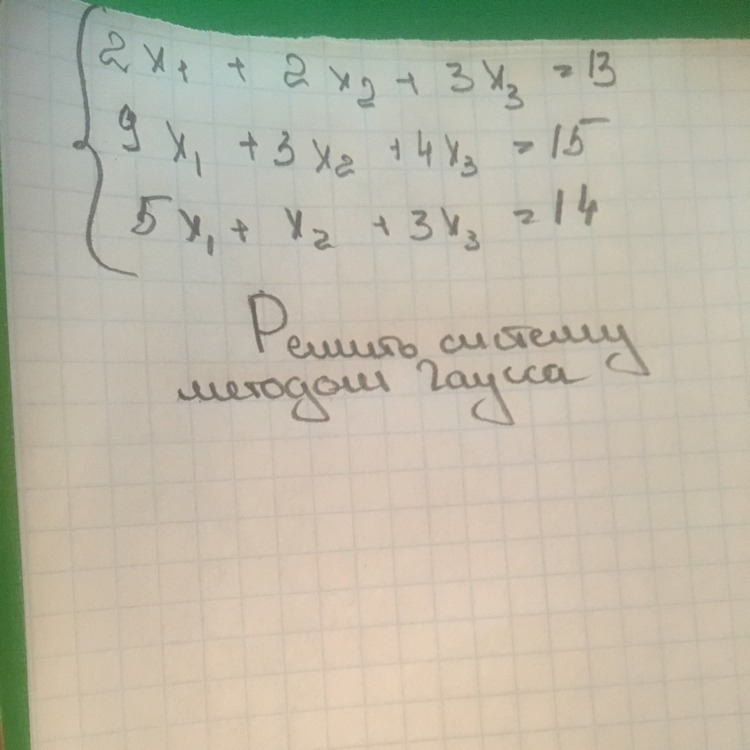 2x₁ + 2x₂ + 3x₃ = 13
9x₁ + 3x₂ + 4x₃ = 15
5x₁ + x₂ + 3x₃ = 14
Решить систему
методом Гаусса